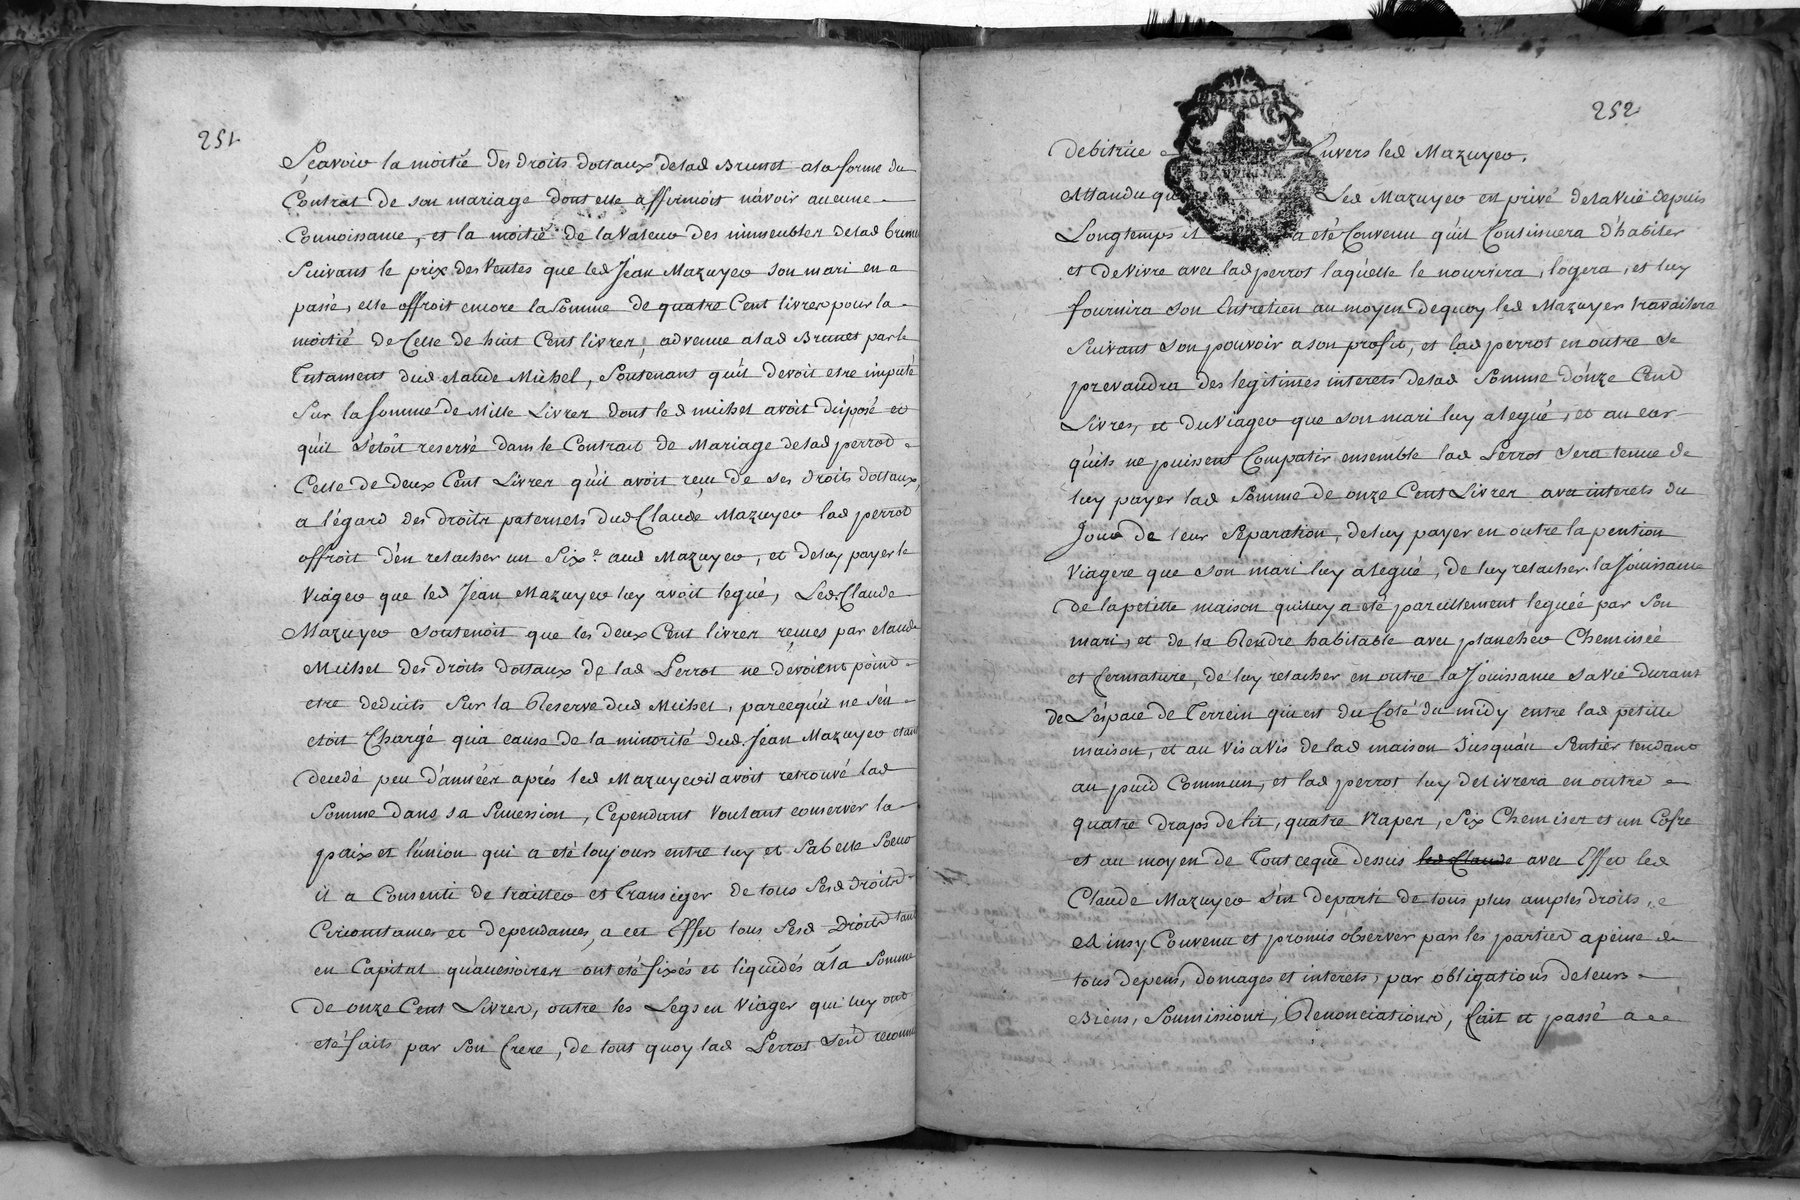 251
Scavoir la moitié des droits dottaux delad Brunet ala forme du
Contrat de son mariage dont elle affirmoit n'avoir aucune
Connoissance, et la moitié de la valeur des immeubles delad brunet
suivant le prix des ventes que led Jean Mazuyer son mari en a
passé, elle offroit encore la somme de quatre Cent livres pour la
moitié de Celle de huit Cent livres, advenue alad Brunet par le
Testament dud claude Michel, Soutenant qu'il devoit etre imputé
sur la somme de Mille Livres dont led michel avoit disposé et
qu'il s'etoit reservé dans le Contrait de Mariage delad perrot
Celle de deux Cent Livres qu'il avoit reçu de ses droits dottaux,
a l'égard des droits paternels dud Claude Mazuyer lad perrot
offroit d'en relacher un Six.e aud Mazuyer, et deluy payer le
Viager que led Jean Mazuyer luy avoit legué, Led Claude
Mazuyer soutenoit que les deux Cent livres reçues par claude
Michel des droits dottaux de lad Perrot ne devoient point
etre deduits sur la Reserve dud Michel, parcequ'il ne s'en
etoit Chargé qu'a cause de la minorité dud. Jean Mazuyer etant
decedé peu d'années aprés led Mazuyer il avoit retrouvé lad
Somme dans sa succession, Cependant voulant conserver la
paix et l'union qui a eté toujours entre luy et sa belle soeur
il a Consenti de traitter et transiger de tous sesd droits
Circonstances et dependances, a cet Effet tous sesd Droits tant
en Capital qu'accessoires ont eté fixés et liquidés a la somme
de onze Cent Livres, outre les Legs en Viager qui luy ont
eté faits par son frere, de tout quoy lad Perrot s'est reconnue
252
debitrice Envers led Mazuyer.
Attandu que Led Mazuyer est privé de la vüe depuis
Longtemps il a eté Convenu qu'il Continuera d'habiter
et de vivre avec lad perrot laquelle le nourrira, logera, et luy
fournira son Entretien au moyen dequoy led Mazuyer travaillera
suivant son pouvoir a son profit, et lad perrot en outre se
prevaudra des legitimes interets delad Somme d'onze Cent
Livres, et du viager que son mari luy a legué, et au cas
qu'ils ne puissent Compatir ensemble lad Perrot sera tenue de
luy payer lad Somme de onze Cent Livres avec interets du
Jour de leur Separation, deluy payer en outre la pention
viagere que son mari luy a legué, de luy relacher la Jouissance
de la petitte maison qui luy a eté pareillement leguée par son
mari, et de la Rendre habitable avec plancher Cheminée
et fermature, de luy relacher en outre la Jouissance sa vie durant
de L'éspace de Terrein qui est du Coté du midy entre lad petitte
maison, et au vis a vis de lad maison jusqu'au Sentier tendant
au puid Commun, et lad perrot luy delivrera en outre
quatre draps de lit, quatre Napes, six Chemises et un Cofre
et au moyen de tout ceque dessus led Claude avec Effet led
Claude Mazuyer s'est departi de tous plus amples droits,
Ainsy Convenu et promis observer par les parties a peine de
tous depens, domages et interets, par obligations deleurs
Biens, Soumissions, Renonciations, fait et passé a